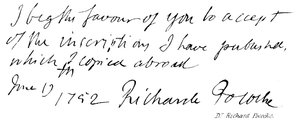 I beg the favour of you to accept
of the inscriptions I have published,
which I copied abroad
June 17th
1752 Richard Pococke
Dr Richard Pococke.